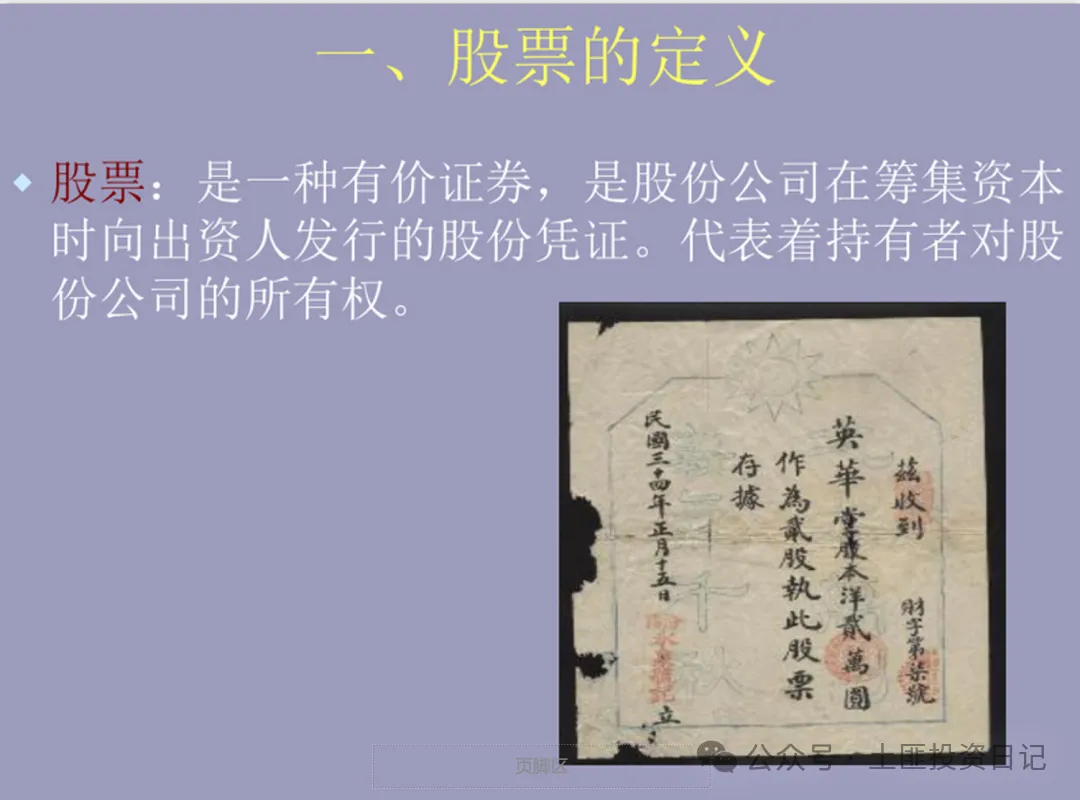 一、股票的定义
股票：是一种有价证券，是股份公司在筹集资本
时向出资人发行的股份凭证。代表着持有者对股
份公司的所有权。
茲收到
財字第柒號
英華堂股本洋貳萬圓
作為貳股執此股票
存據
民國三十四年正月十五日
立
页脚区
公众号·土匪投资日记